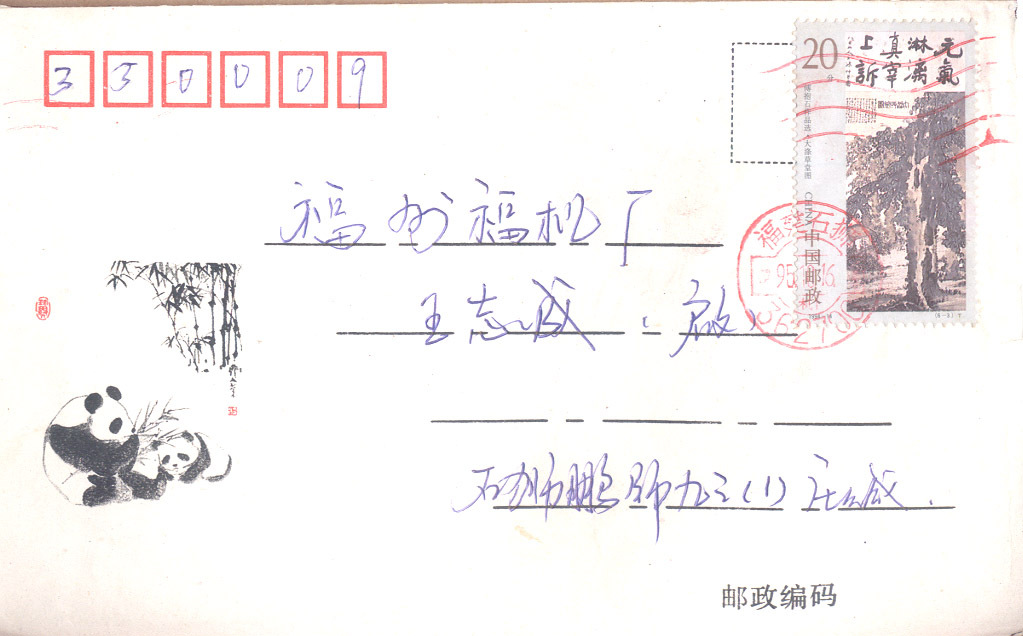 350009
20分
元氣
淋漓
真宰
上訴
傅抱石作品选·大涤草堂图
CHINA 中国邮政
福建石狮
95
16
362700
福州福机厂
王志成 启
石狮鹏师九三(1)
邮政编码